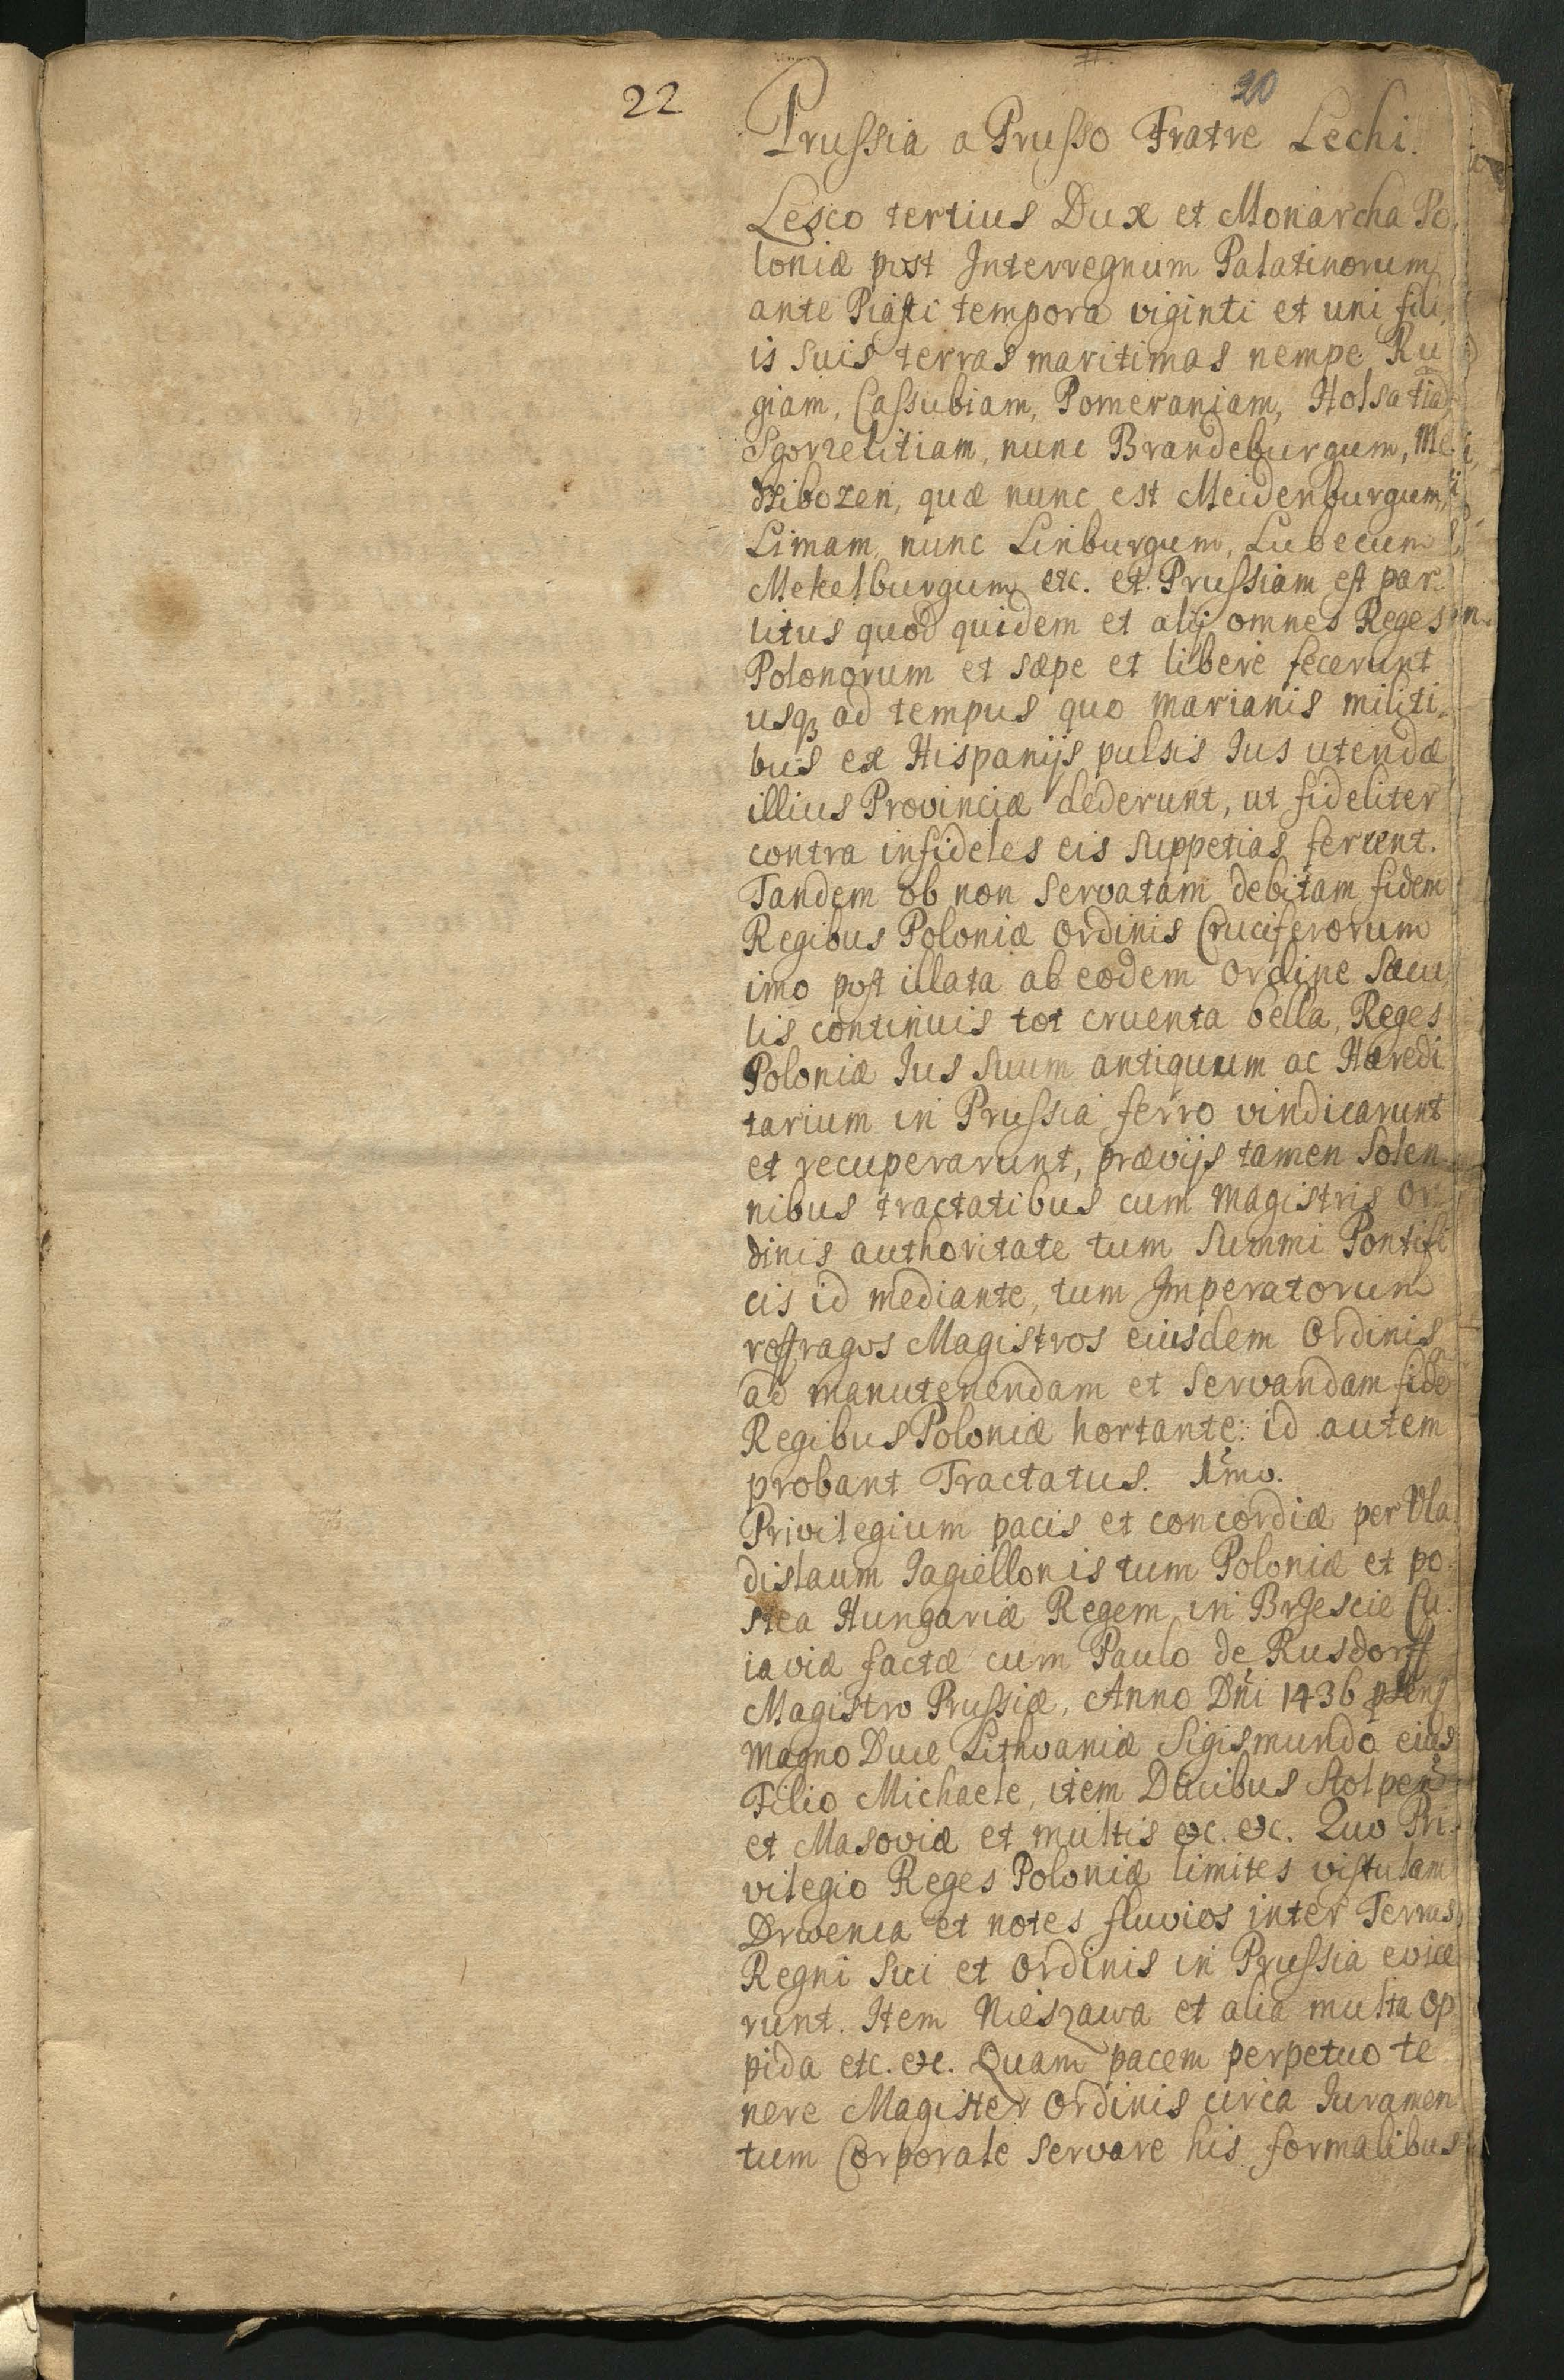 22
20
Prussia a Prusso Fratre Lechi.
Lesco tertius Dux et Monarcha Po
loniæ post Interregnum Palatinorum
ante Piasti tempora viginti et uni fili
is suis terras maritimas nempe Ru
giam, Cassubiam, Pomeraniam, Holsatiā
Sgorzelitiam, nunc Brandeburgum, Me
dzibozen, quæ nunc est Meidenburgum,
Limam, nunc Linburgum, Lubecum
Mekelburgum etc. et Prussiam est par
titus quod quidem et alij omnes Reges
Polonorum et sæpe et libere fecerunt
usq3 ad tempus quo Marianis militi
bus ex Hispanijs pulsis Ius utendæ
illius Provinciæ dederunt, ut fideliter
contra infideles eis suppetias ferrent.
Tandem ob non servatam debitam fidem
Regibus Poloniæ Ordinis Cruciferorum
imo post illata ab eodem Ordine sæcu
lis continuis tot cruenta bella, Reges
Poloniæ Ius suum antiquum ac Hæredi
tarium in Prussia ferro vindicarunt
et recuperarunt, prævijs tamen solen
nibus tractatibus cum Magistris Or
dinis authoritate tum Summi Pontifi
cis id mediante, tum Imperatorum
reffragos Magistros eiusdem Ordinis
ad manutenendam et servandam fidē
Regibus Poloniæ hortante: id autem
probant Tractatus. 1mo.
Privilegium pacis et concordiæ per Vla
dislaum Jagiellonis tum Poloniæ et po
stea Hungariæ Regem in Brzescie Cu
iaviæ factæ cum Paulo de Rusdorff
Magistro Prussiæ, Anno Dni 1436
Magno Duce Lithvaniæ Sigismundo eius
Filio Michaele, item Ducibus Stolpen
et Masoviæ et multis etc. etc. Quo Pri
vilegio Reges Poloniæ limites vistulam
Drwenca et notes fluvios inter Terras
Regni sui et Ordinis in Prussia evice
runt. Item Nieszawa et alia multa op
pida etc. etc. Quam pacem perpetuo te
nere Magister Ordinis circa Iuramen
tum Corporale servare his formalibus